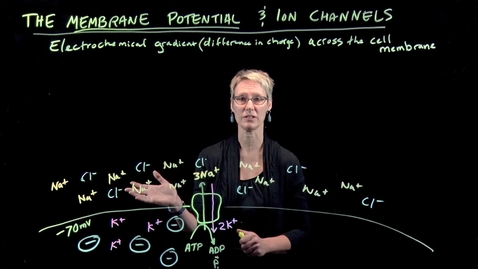 THE MEMBRANE POTENTIAL & ION CHANNELS
Electrochemical gradient (difference in charge) across the cell
membrane
Cl⁻
Cl⁻
Na⁺
Cl⁻
Na⁺
Na⁺
3Na⁺
Na⁺
Na⁺
Cl⁻
Na⁺
Cl⁻
Na⁺
Na⁺
Cl⁻
Na⁺
Na⁺
Cl⁻
-70mV
K⁺
K⁺
-
2K⁺
-
K⁺
-
-
ATP
ADP
Pi